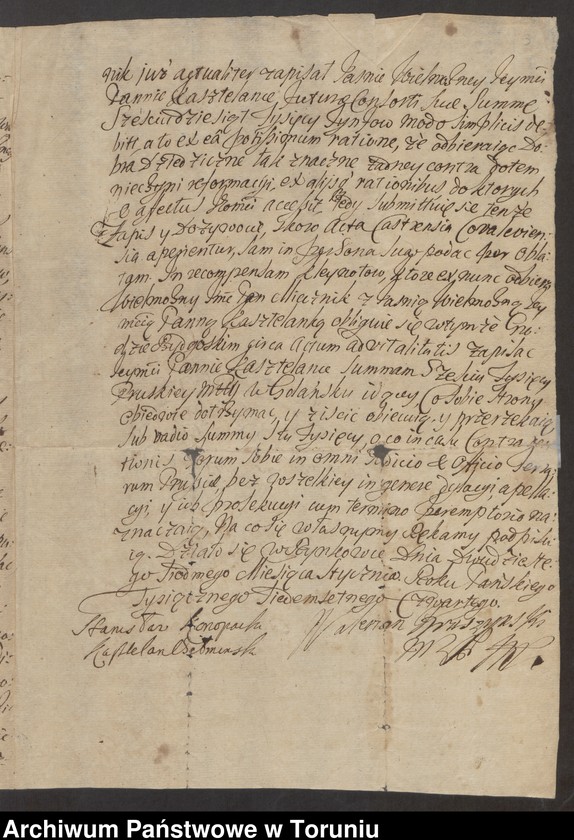 nik już actualiter zapisał Jaśnie Wielmożney Jeymci
Pannie Kasztelance, futuræ Consorti suæ Summę
Sześćdziesiąt Tysięcy Tynfow modo simplicis de-
biti a to ex ea potissimum ratione, że odbieraiąc Do-
bra Dziedziczne tak znaczne żadney contra potem
nieczyni reformacyi, ex alijsq rationibus do ktorych
affectus Jeomci accessit, tedy submittuie się tenże
Zapis y Dożywocie, skoro Acta Castrensia Covalevien-
sia aperientur, sam in persona sua podac per obla-
tam. In recompensam kleynotow, ktore ex nunc odbiera
Wielmożny Jmć Pan Miecznik z Jaśnie Wielmożną Jey
mcią Panną Kasztelanką obliguie się w tymże Gro-
dzie Bydgoskim circa Actum advitalitatis zapisac
Jeymci Pannie Kasztelance Summam Sześciu Tysięcy
Pruskiey w Gdańsku idącey Co sobie strony
obiedwie dotrzymac, y ziścic obiecuią, y przyrzekaią
sub vadio Summy stu Tysięcy, o co in casu Contraven-
tionis forum sobie in omni Judicio & Officio Terra-
rum Prussiæ, bez wszelkiey in genere dylacyi apella-
cyi, y ich prosekucyi cum termino peremptorio na-
znaczaią, Na co się własnymi Rękamy podpisu-
ią. Działo się w Rynkowie Dnia dwudzieste-
go siodmego Miesiąca Stycznia Roku Pańskiego
Tysiącznego Siedemsetnego Czwartego.
Stanisław Konopacki
Walerian Kruszynski
Kasztelan Chełminski
Archiwum Państwowe w Toruniu